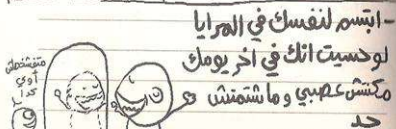 - ابتسم لنفسك في المرايا
لو حسيت انك في اخر يومك
مكنتش عصبي وماشتمتش
حد
متتنفخش
أوي
كدا